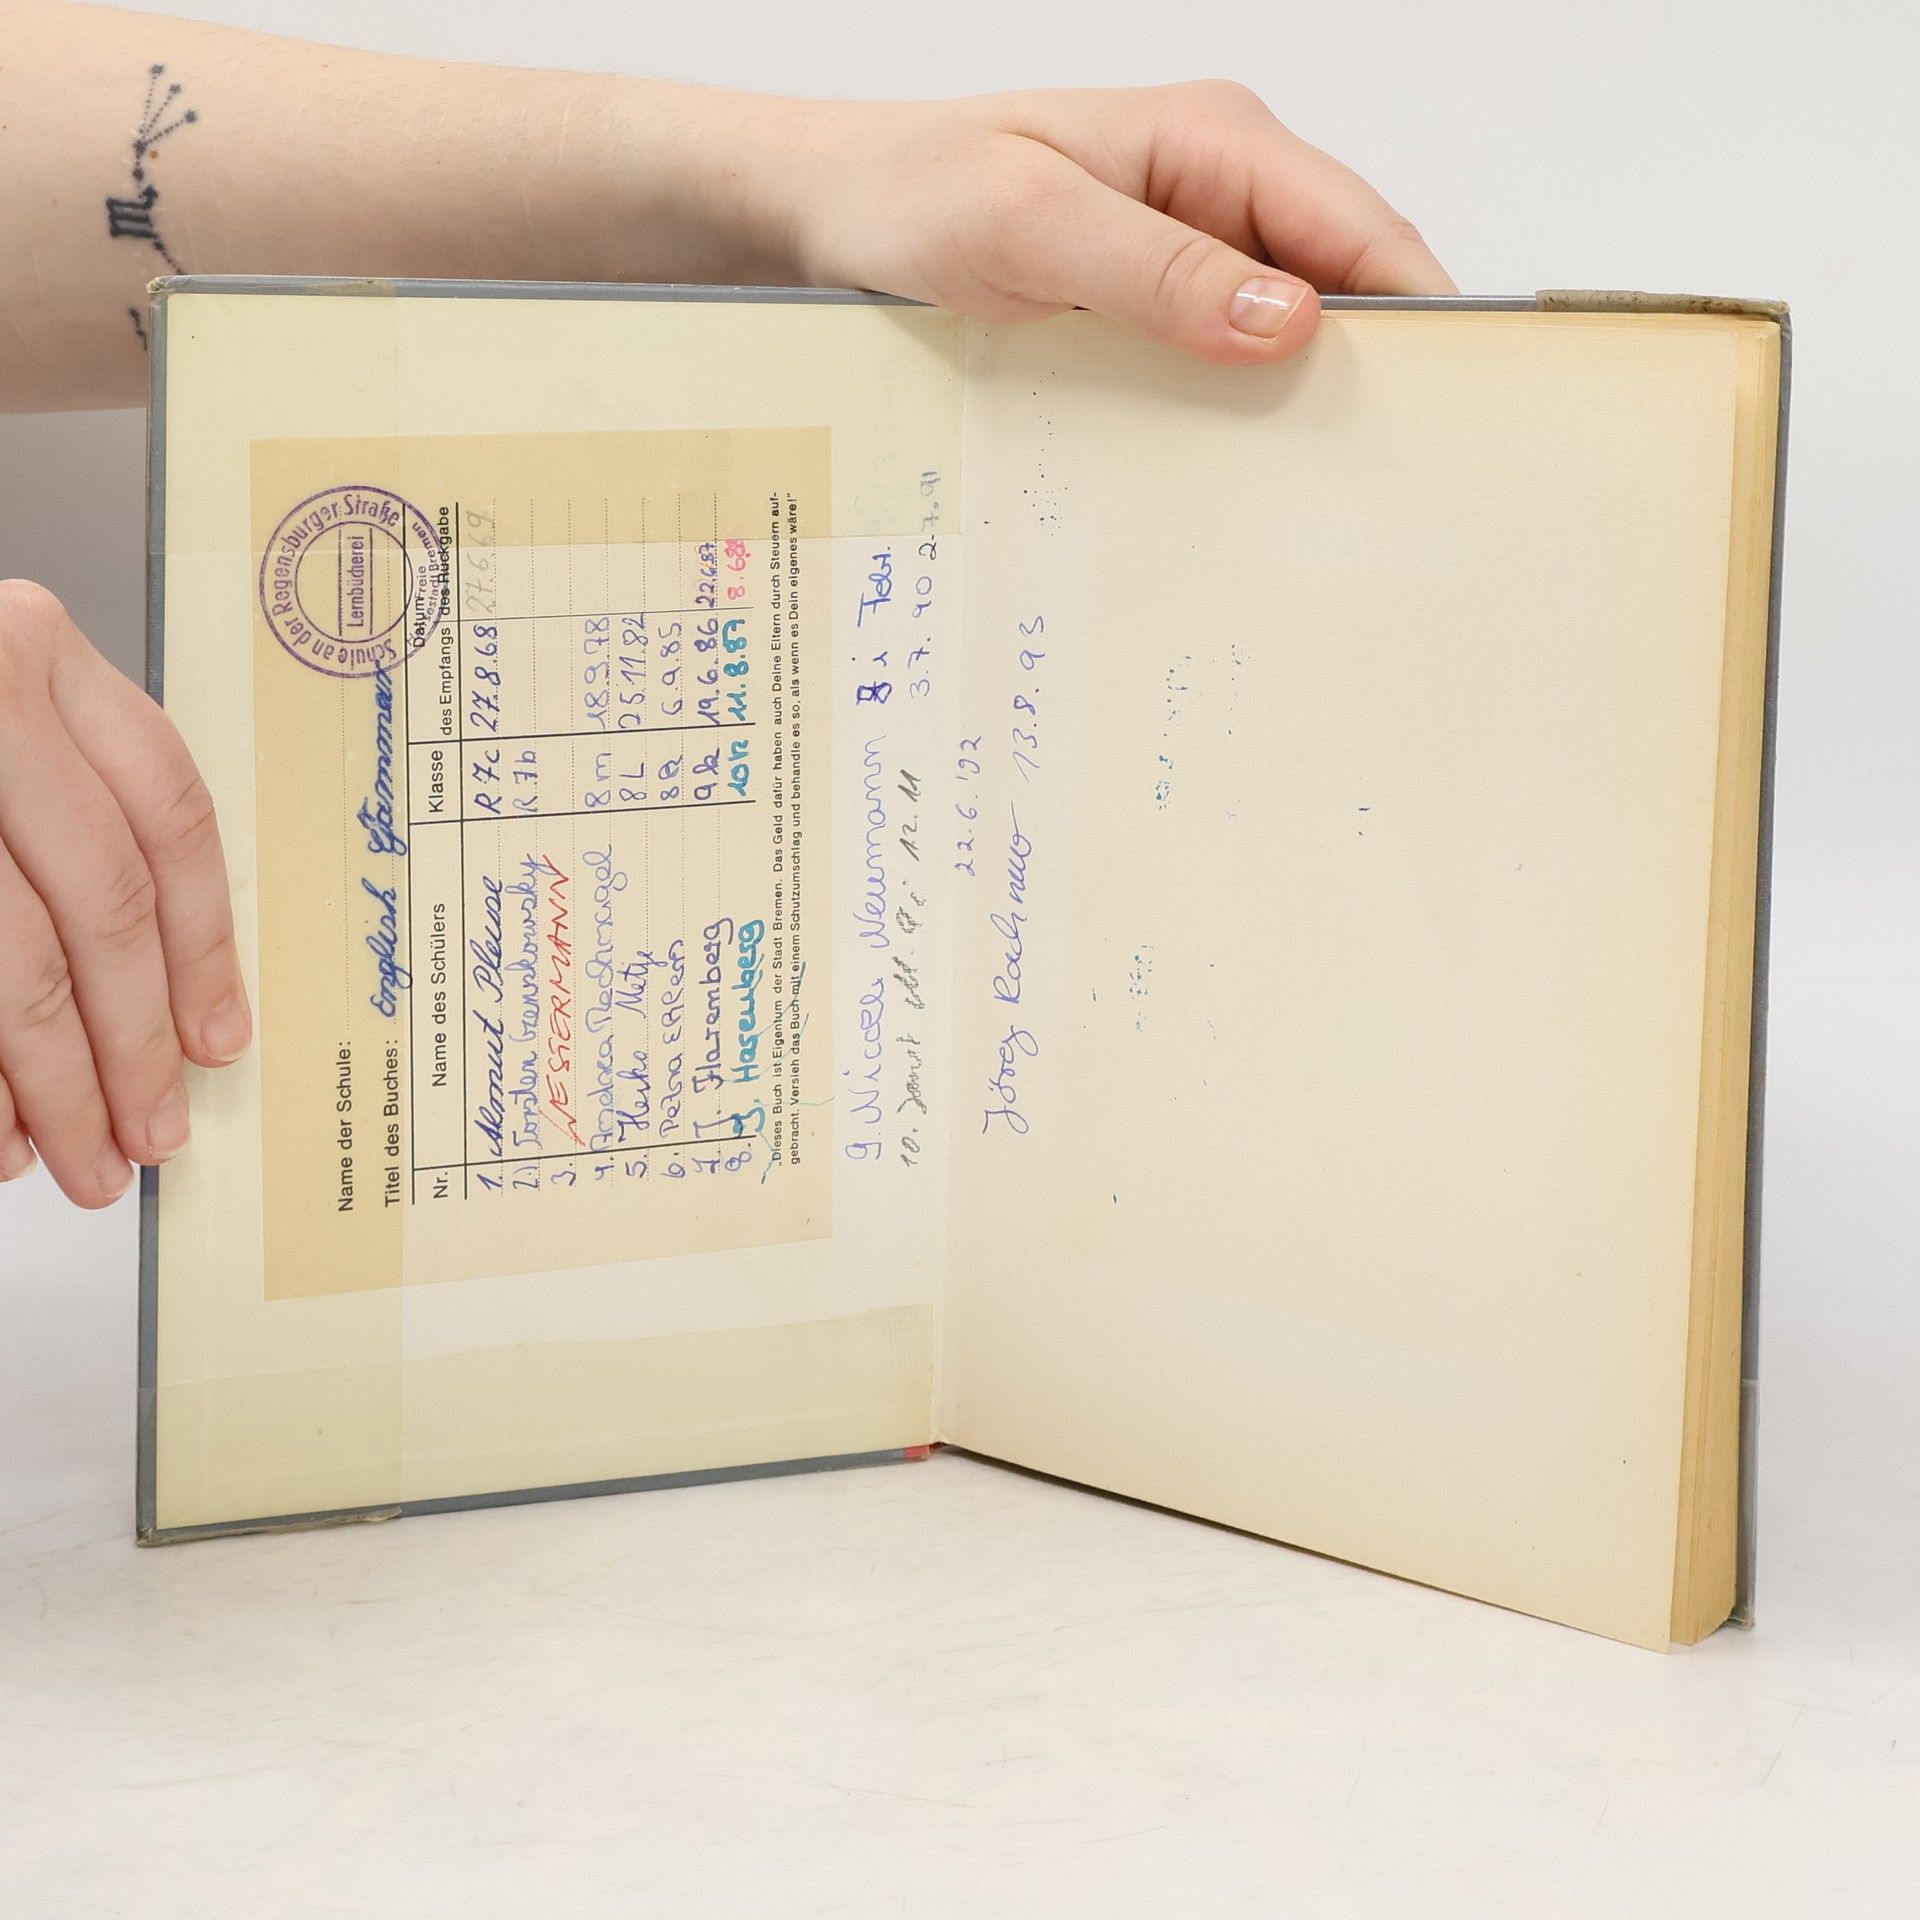 Schule an der Regensburger Straße
Lernbücherei
Freie
Hansestadt Bremen
Name der Schule:
Titel des Buches: English Grammar
Nr. Name des Schülers Klasse Datum
des Empfangs des Rückgabe
1. Almut Pleuse R 7c 27.8.68 27.6.69
2.) Torsten R.7b
3. WESTERMANN
4. Andrea 8m 18.9.78
5. Heiko Metje 8L 25.11.82
6. Petra Ehlers 8a 6.9.85
7. J. Harenberg 9k 19.6.86 22.6.87
8. J. Hasenberg 10k 11.8.87 8.6.88
„Dieses Buch ist Eigentum der Stadt Bremen. Das Geld dafür haben auch Deine Eltern durch Steuern auf-
gebracht. Versieh das Buch mit einem Schutzumschlag und behandle es so, als wenn es Dein eigenes wäre!"
9. Nicole Neumann
10. 12.11 3.7.90 2.7.91
22.6.'92
Jörg 13.8.93